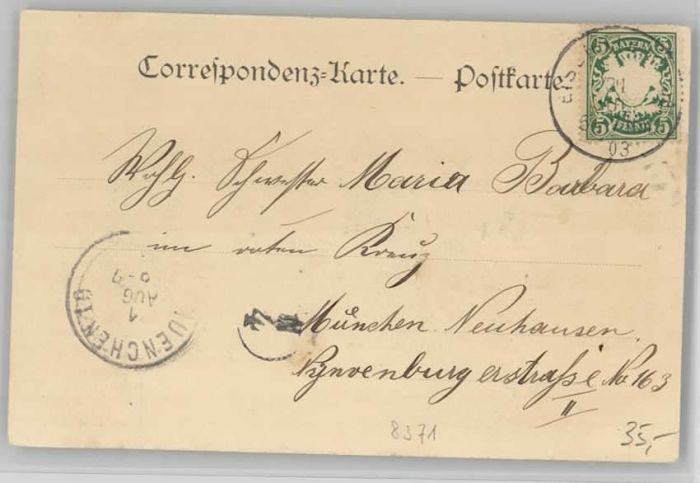 Correspondenz-Karte. — Postkarte
5 BAYERN 5
5 PFENNIG 5
03
Wohlg. Schwester Maria Barbara
im roten Kreuz
München Neuhausen.
Nynvenburgerstraße No 163
II
MUENCHEN
1
AUG
8371
35,-